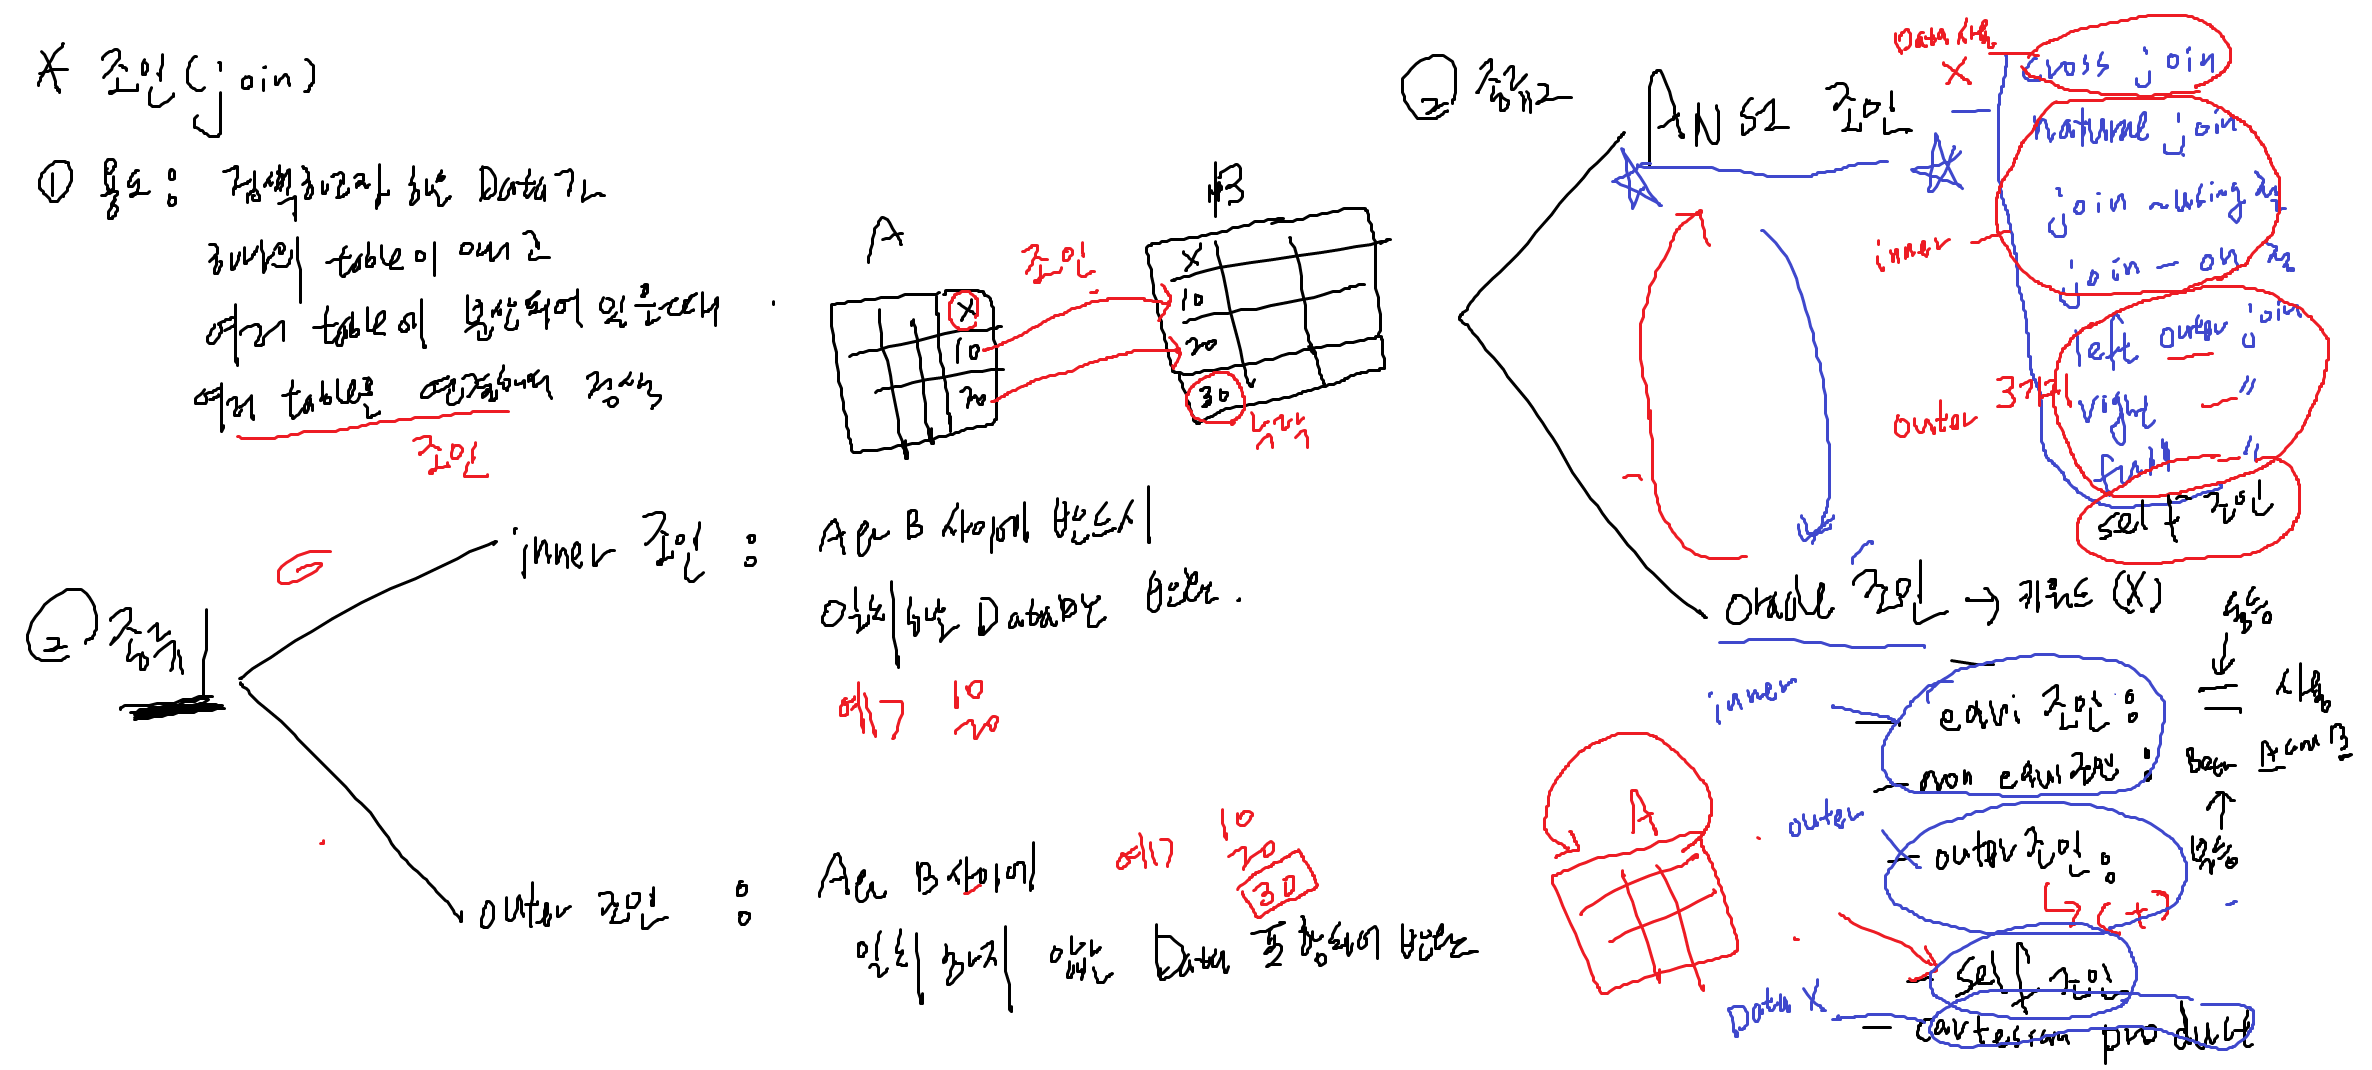 * 조인(join)
① 용도 : 검색하고자 하는 Data가
하나의 table이 아니고
여러 table에 분산되어 있을때
여러 table을 연결해서 검색
조인
A
X
10
20
조인
B
X
10
20
30
누락
② 종류1
inner 조인 : A와 B 사이에 반드시
일치하는 Data만 반환.
예) 10
20
outer 조인 : A와 B 사이에
일치하지 않는 Data 포함되어 반환
예) 10
20
30
② 종류2
ANSI 조인
Data 사용
X
cross join
natural join
join ~using 절
join - on 절
inner
left outer join
right 〃
full 〃
outer 3가지
self 조인
Oracle 조인 → 키워드 (X)
동등
inner
- equi 조인 : = 사용
- non equi 조인 : A and B
부등
outer
- outer 조인 :
↳ (+)
A
- self 조인
Data X
- cartesian product